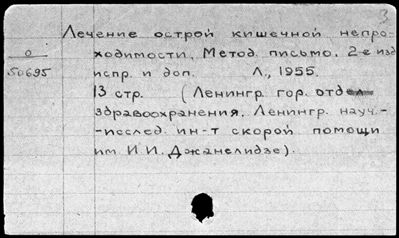 3
Лечение острой кишечной непро-
о ходимости. Метод. письмо. 2-е изд.
50695 испр. и доп. Л., 1955.
13 стр. (Ленингр. гор. отдел
здравоохранения. Ленингр. науч.-
-исслед. ин-т скорой помощи
им. И.И. Джанелидзе).